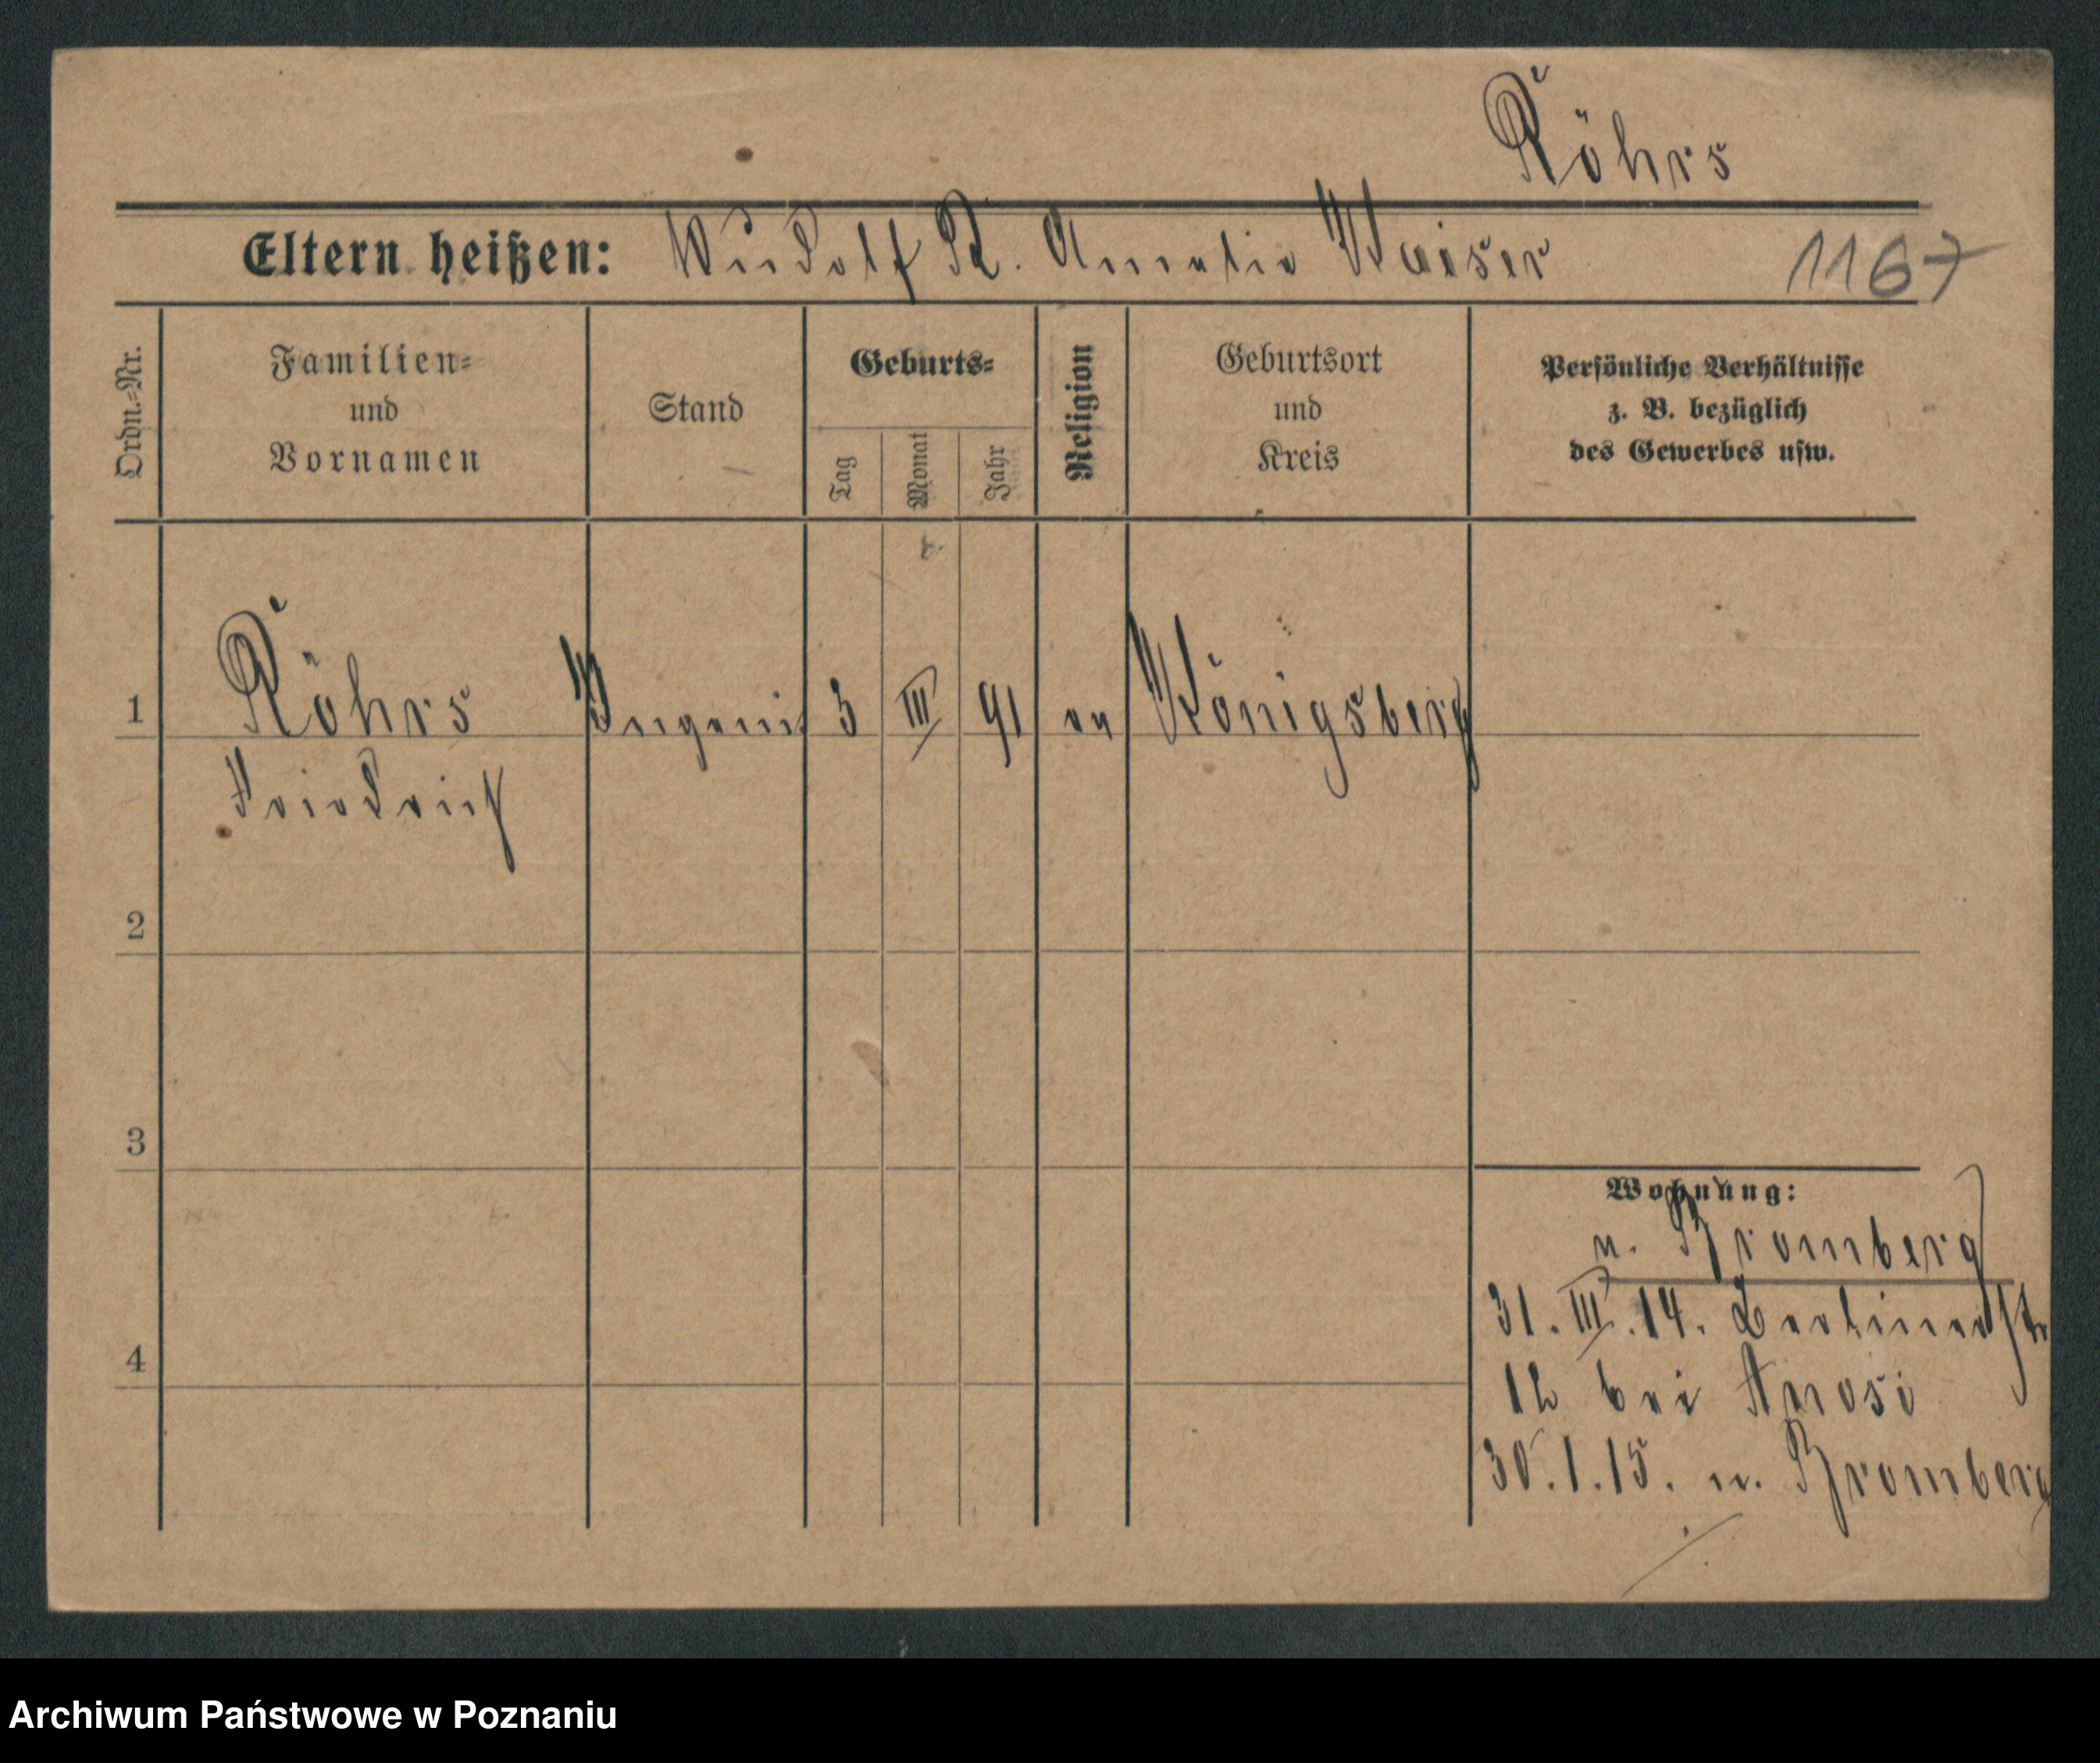 Röhrs
Eltern heißen: Rudolf R. Amalie Kaiser
1167
Ordn.-Nr.
Familien-
und
Vornamen
Stand
Geburts-
Tag
Monat
Jahr
Religion
Geburtsort
und
Kreis
Persönliche Verhältnisse
z. B. bezüglich
des Gewerbes usw.
1
Röhrs
3
III
91
ev
Königsberg
Friedrich
2
3
4
Wohnung:
n. Bromberg
31. III. 14. Berlinerstr
12 bei
30.1.15. n. Bromberg
Archiwum Państwowe w Poznaniu